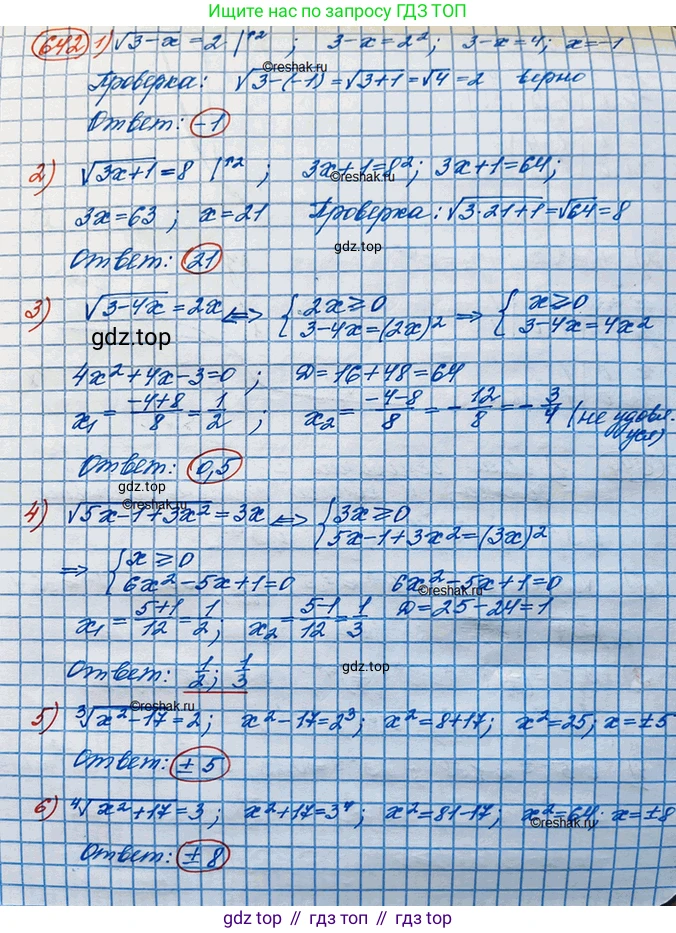 Ищите нас по запросу ГДЗ ТОП
642 1) √3-x = 2 |↑2 ; 3-x=2²; 3-x=4; x=-1
©reshak.ru
Проверка: √3-(-1) = √3+1 = √4 = 2 верно
Ответ: -1
2) √3x+1 = 8 |↑2 ; 3x+1=8²; 3x+1=64;
©reshak.ru
3x=63 ; x=21 Проверка: √3·21+1 = √64 = 8
gdz.top
Ответ: 21
3) √3-4x = 2x ⇔ { 2x⩾0 ⇒ { x⩾0
3-4x=(2x)² 3-4x=4x²
gdz.top
4x²+4x-3=0 ; D=16+48=64
x₁ = -4+8/8 = 1/2 ; x₂ = -4-8/8 = -12/8 = -3/4 (не удовл.
уся)
Ответ: 0,5
gdz.top
©reshak.ru
4) √5x-1+3x² = 3x ⇔ { 3x⩾0
5x-1+3x²=(3x)²
⇒ { x⩾0
6x²-5x+1=0 6x²-5x+1=0
©reshak.ru
x₁ = 5+1/12 = 1/2 ; x₂ = 5-1/12 = 1/3 D=25-24=1
Ответ: 1/2; 1/3
gdz.top
©reshak.ru
5) ³√x²-17 = 2; x²-17=2³; x²=8+17; x²=25; x=±5
Ответ: ±5
6) ⁴√x²+17 = 3; x²+17=3⁴; x²=81-17; x²=64; x=±8
©reshak.ru
Ответ: ±8
gdz.top // гдз топ // gdz.top